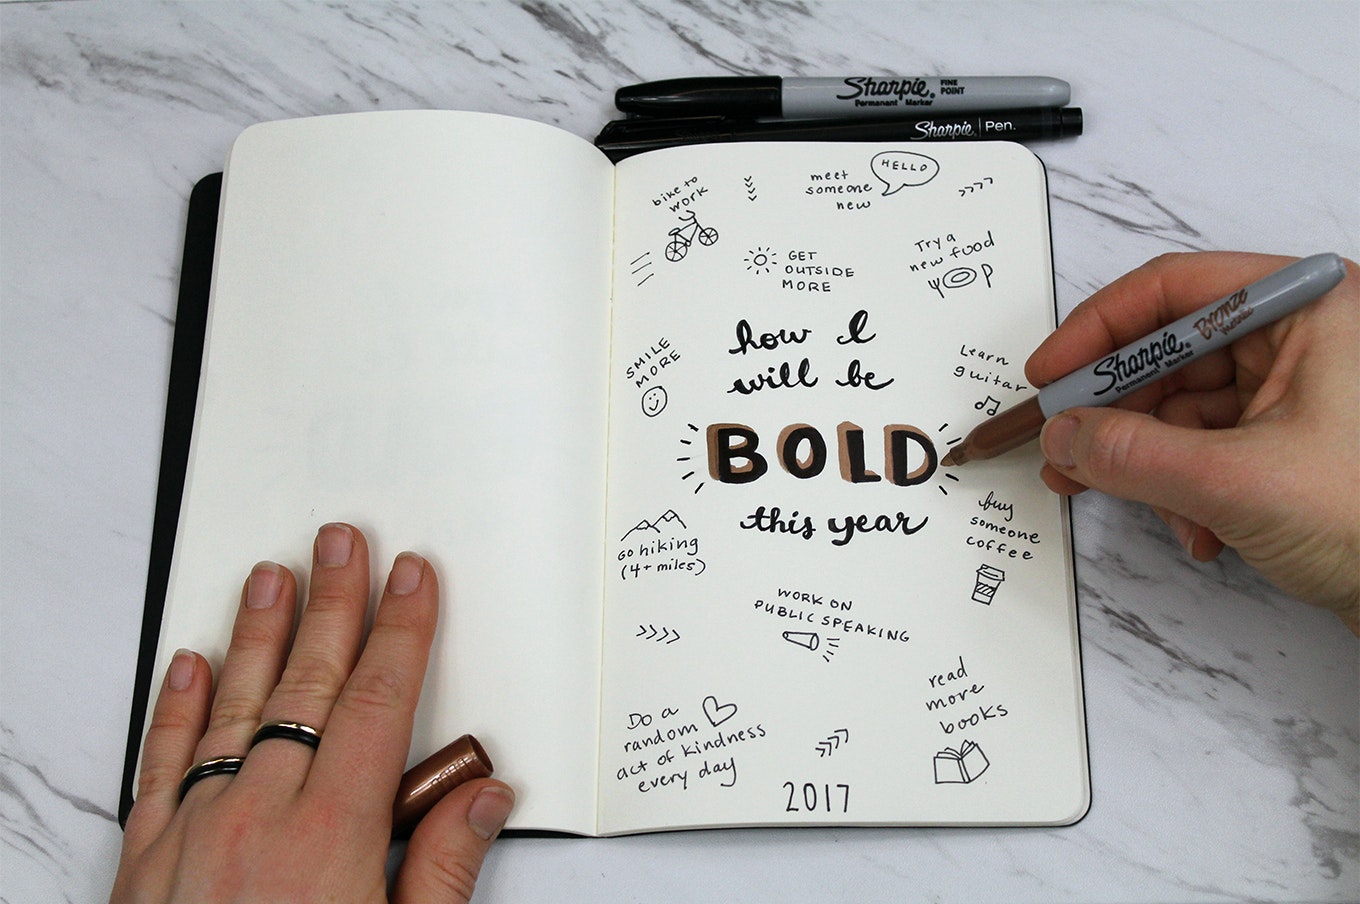 Sharpie. FINE
POINT
Permanent Marker
Sharpie. Pen.
bike to
work
meet
someone
new
HELLO
GET
OUTSIDE
MORE
Try a
new food
how I
will be
BOLD
this year
SMILE
MORE
Learn
guitar
Sharpie. Bronze
Permanent Marker Metallic
GO hiking
(4+ miles)
buy
someone
coffee
WORK ON
PUBLIC SPEAKING
Do a
random
act of kindness
every day
read
more
books
2017